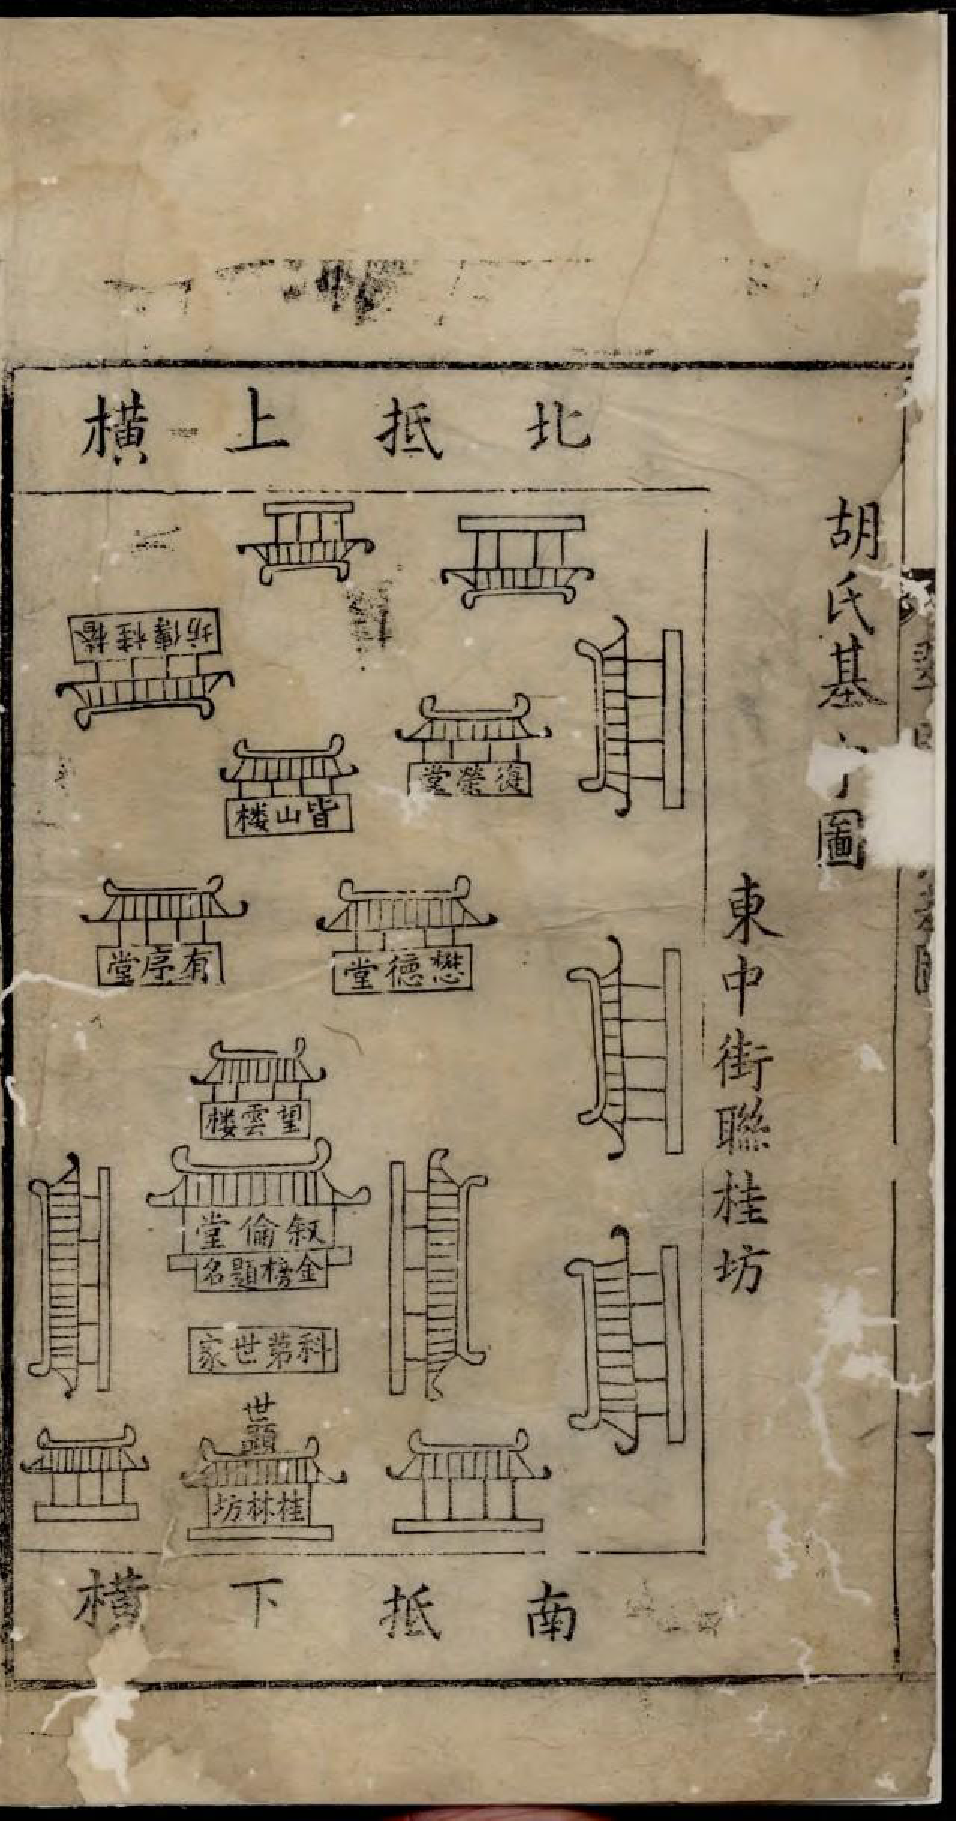 胡氏基
圖
東中街聯桂坊
北抵上橫
坊傳桂
復榮堂
皆山楼
懋德堂
有序堂
望雲楼
叙倫堂
金榜題名
科第世家
世顯
桂林坊
南抵下橫